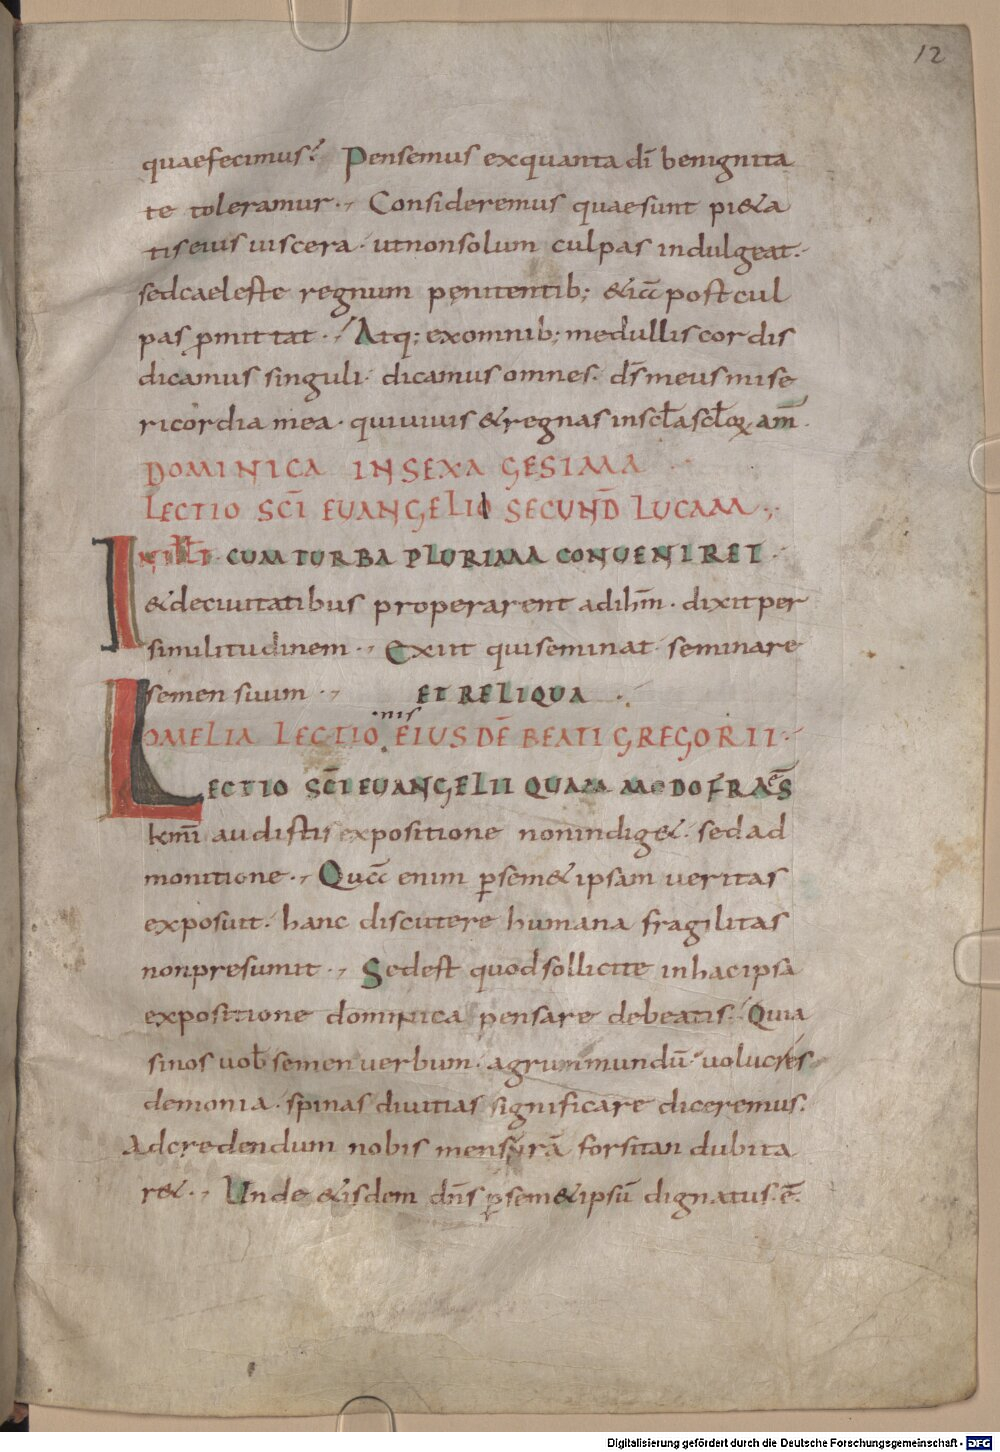 12
quaefecimus? Pensemus exquanta dī benignita
te toleramur · Consideremus quaesunt pi&a
tis eius uiscera · utnonsolum culpas indulgeat ·
sedcaeleste regnum penitentib; &iā post cul
pas ꝓmittat · Atq; exomnib; medullis cordis
dicamus singuli · dicamus omnes · ds̄ meus mise
ricordia mea · quiuiuis & regnas inscl̄a scl̄oꝝ am̄ ·
DOMINICA IN SEXAGESIMA
LECTIO SC̄I EUANGELII SECUND̄ LUCAM
IN ILLT CUM TURBA PLURIMA CONUENIRET
&deciuitatibus properarent adihm̄ · dixit per
similitudinem · Exiit quiseminat seminare
semen suum · ET RELIQUA
OMELIA LECTIOnis EIUSDĒ BEATI GREGORII ·
LECTIO SC̄I EUANGELII QUAM MODO FRA͞ES
km̄i audistis expositione nonindig& · sed ad
monitione · Quā enim ꝑsem&ipsam ueritas
exposuit · hanc discutere humana fragilitas
nonpresumit · Sedest quodsollicite inhacipsa
expositione dominica pensare debeatis · Quia
sinos uob̄ semen uerbum · agrum mundū · uolucres
demonia · spinas diuitias significare diceremus ·
Adcredendum nobis mens ūrā forsitan dubita
r& · Unde &isdem dn̄s ꝑsem&ipsū dignatus · ē ·
Digitalisierung gefördert durch die Deutsche Forschungsgemeinschaft - DFG